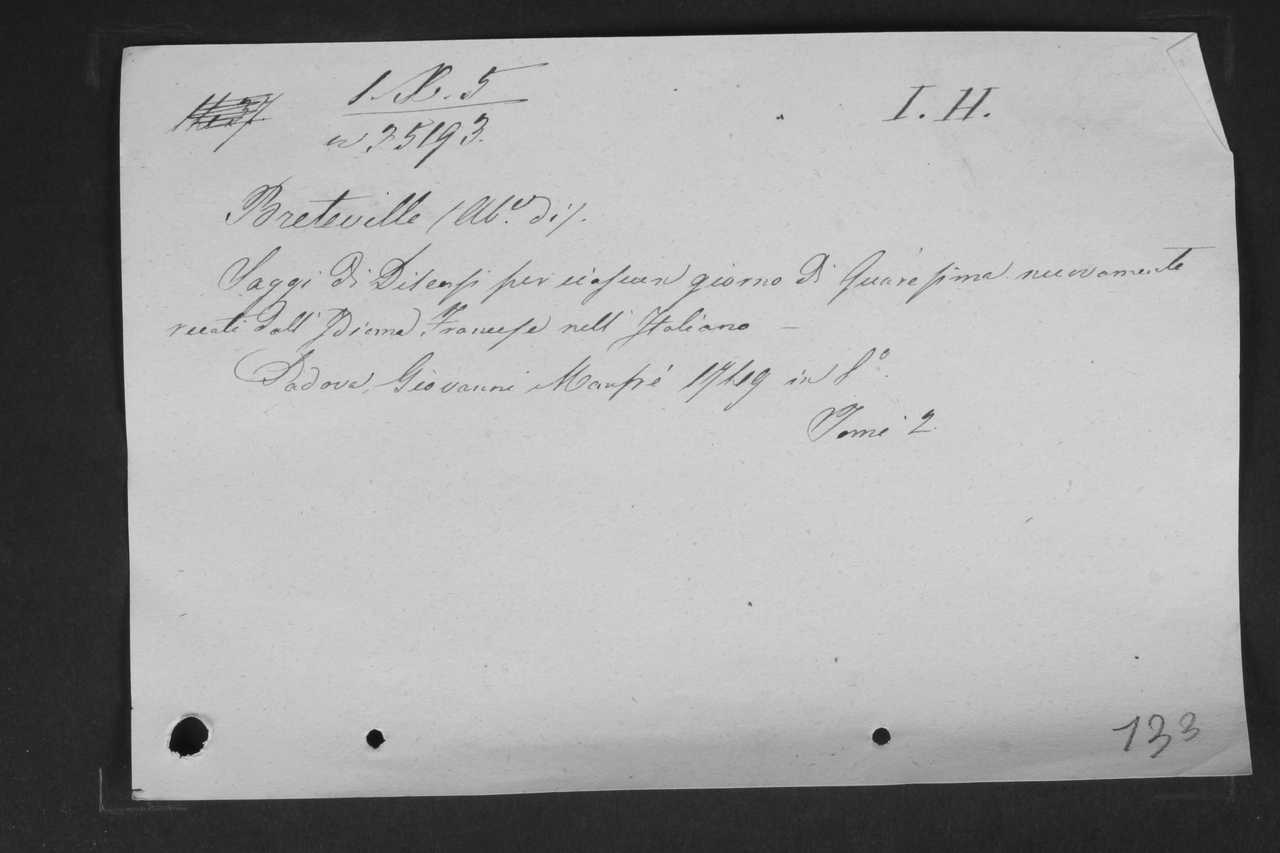 1. X. 5
I. H.
N 35193.
Breteville (Ab.e di).
Saggi di Discorsi per ciascun giorno di Quaresima nuovamente
recati dall' Idioma Francese nell' Italiano —
Padova Giovanni Manfrè 1749 in 8°.
Tomi 2
133